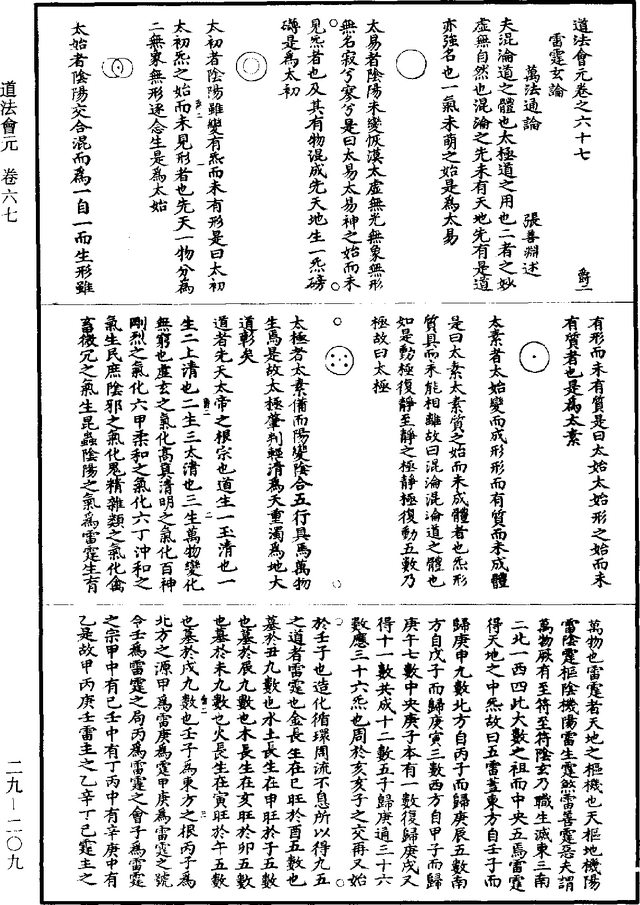 道法會元卷之六十七
爵二
雷霆玄論
萬法通論
張善淵述
夫混淪道之體也太極道之用也二者之妙
虛無自然也混淪之先未有天地先有是道
亦強名也一氣未萌之始是為太易
太易者陰陽未變恢漠太虛無光無象無形
無名寂兮寥兮是曰太易太易神之始而未
見炁者也及其有物混成先天地生一炁磅
礡是為太初
太初者陰陽雖變有炁而未有形是曰太初
太初炁之始而未見形者也先天一物分為
二無象無形逐念生是為太始
太始者陰陽交合混而為一自一而生形雖
有形而未有質是曰太始太始形之始而未
有質者也是為太素
太素者太始變而成形形而有質而未成體
是曰太素太素質之始而未成體者也炁形
質具而未能相離故曰混淪混淪道之體也
如是動極復靜至靜之極靜極復動五數乃
極故曰太極
太極者太素備而陽變陰合五行具焉萬物
生焉是故太極肇判輕清為天重濁為地大
道彰矣
道者先天太帝之根宗也道生一玉清也一
生二上清也二生三太清也三生萬物變化
無窮也虛玄之氣化高真清明之氣化百神
剛烈之氣化六甲柔和之氣化六丁沖和之
氣生民庶陰邪之氣化鬼精雜類之氣化禽
畜微冗之氣生昆蟲陰陽之氣為雷霆生育
萬物也雷霆者天地之樞機也天樞地機陽
雷陰霆樞陰機陽雷生霆煞雷善霆惡夫謂
萬物厥有至符至符陰玄乃職生滅東三南
二北一西四此大數之祖而中央五焉雷霆
得天地之中炁故曰五雷蓋東方自壬子而
歸庚申九數北方自丙子而歸庚辰五數南
方自戊子而歸庚寅三數西方自甲子而歸
庚午七數中央庚子本有一數復歸庚戌又
得十一數共成十二數五子歸庚通三十六
數應三十六炁也周於亥亥子之交再又始
於壬子也造化循環周流不息所以得九五
之道者雷霆也金長生在巳旺於酉五數也
墓於丑九數也水土長生在申旺於子五數
也墓於辰九數也木長生在亥旺於卯五數
也墓於未九數也火長生在寅旺於午五數
也墓於戌九數也壬子為東方之根丙子為
北方之源甲為雷庚為霆甲庚為雷霆之號
令壬為雷霆之局丙為雷霆之會子為雷霆
之宗甲中有己壬中有丁丙中有辛庚中有
乙是故甲丙庚壬雷主之乙辛丁己霆主之
道法會元 卷六七
二九－二〇九